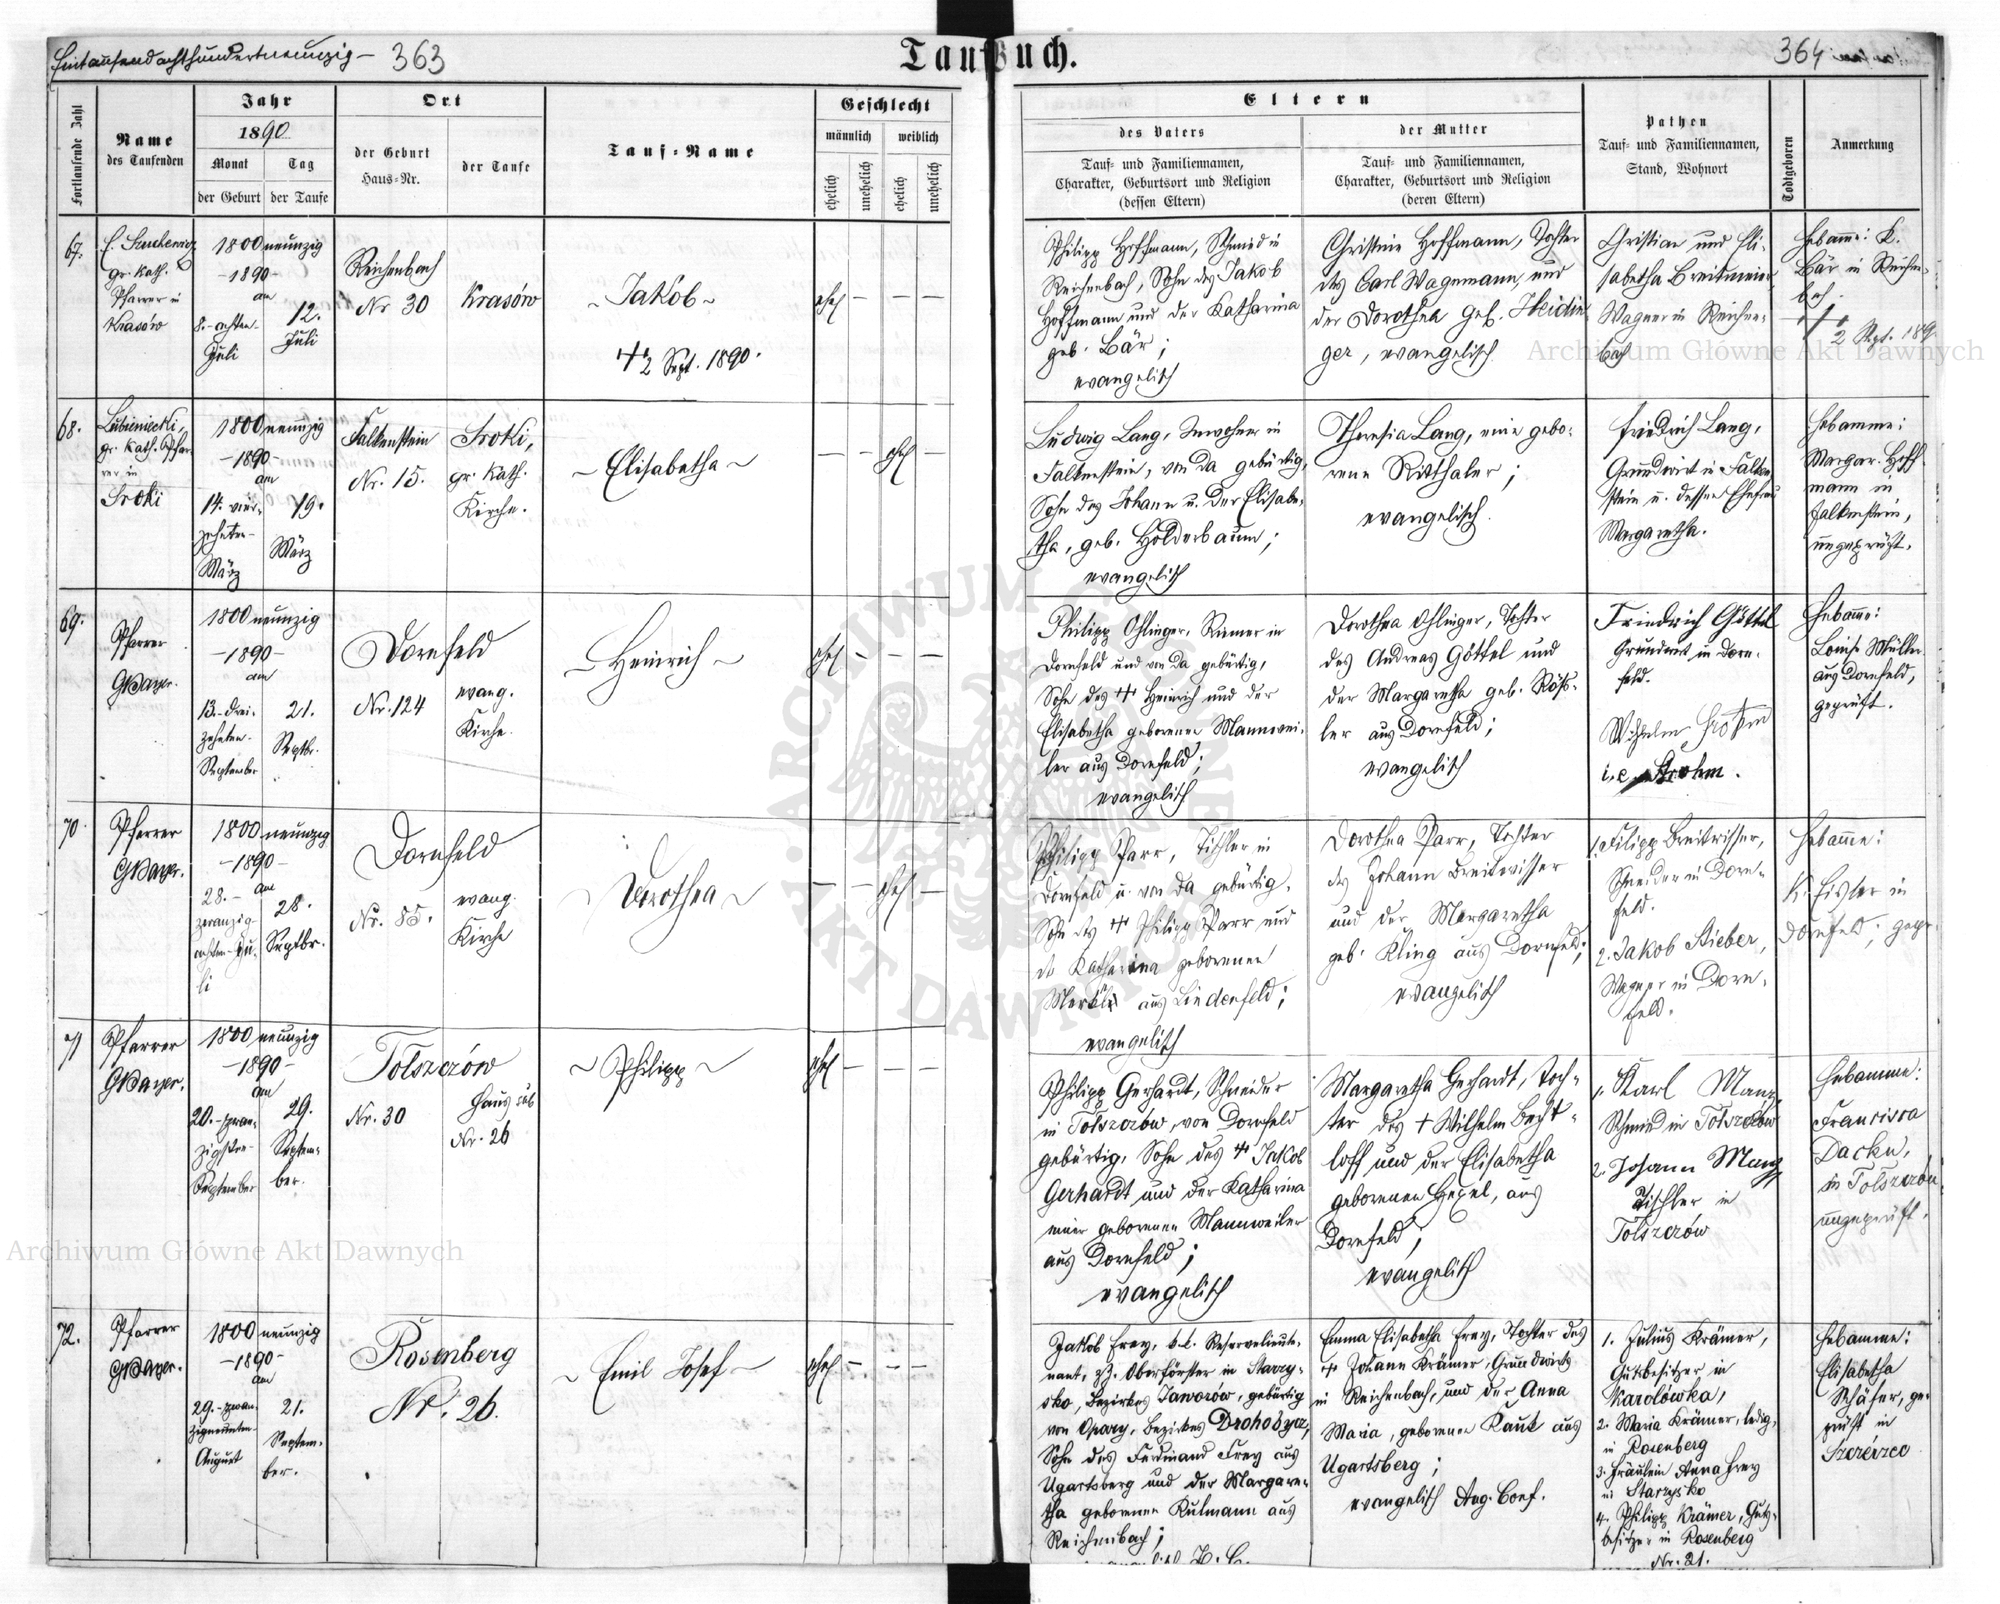 Eintausendachthundertneunzig – 363
Taufbuch.
364
Fortlaufende Zahl
Name
des Taufenden
Jahr
1890
Monat
Tag
der Geburt
der Taufe
Ort
der Geburt
Haus-Nr.
der Taufe
Tauf-Name
Geschlecht
männlich
weiblich
ehelich
unehelich
ehelich
unehelich
Eltern
des Vaters
Tauf- und Familiennamen,
Charakter, Geburtsort und Religion
(dessen Eltern)
der Mutter
Tauf- und Familiennamen,
Charakter, Geburtsort und Religion
(deren Eltern)
Pathen
Tauf- und Familiennamen,
Stand, Wohnort
Todtgeboren
Anmerkung
67.
gr. kath.
Pfarrer in
Krasów
1800 neunzig
– 1890 –
am
8. – achten –
Juli
12.
Juli
Reichenbach
Nr 30
Krasów
Jakob
† 2 Sept. 1890.
ehel – – –
Philipp Hoffmann, Schmied in
Reichenbach, Sohn des Jakob
Hoffmann und der Katharina
geb. Bär;
evangelisch
Christine Hoffmann, Tochter
des Carl Wagemann, und
der Dorothea geb. Heidin-
ger, evangelisch
Christian und Eli-
sabetha Breitmeier
Wagner in Reichen-
bach
Hebamme: K.
Bär in Reichen-
bch.
† 2 Sept. 189
68.
Lubieniecki,
gr. kath. Pfar-
rer in
Sroki
1800 neunzig
– 1890 –
am
14. vier-
zehnten –
März
19.
März
Falkenstein
Nr. 15.
Sroki,
gr. kath.
Kirche.
Elisabetha
– – ehel –
Ludwig Lang, Inwohner in
Falkenstein, von da gebürtig,
Sohn des Johann u. der Elisabe-
tha, geb. Holderbaum;
evangelisch
Theresia Lang, eine gebo-
rene Ritthaler;
evangelisch.
Friedrich Lang,
Grundwirt in Falken-
stein u. dessen Ehefrau
Margaretha.
Hebamme:
Margar. Hoff-
mann in
Falkenstein,
ungeprüft.
69.
Pfarrer
1800 neunzig
– 1890 –
am
13. – drei-
zehnten –
September
21.
Septbr.
Dornfeld
Nr. 124
evang.
Kirche.
Heinrich
ehel – – –
Philipp Ohlinger, Riemer in
Dornfeld und von da gebürtig,
Sohn des † Heinrich und der
Elisabetha geborenen Mannwei-
ler aus Dornfeld;
evangelisch
Dorothea Ohlinger, Tochter
des Andreas Göttel und
der Margaretha geb. Röß-
ler aus Dornfeld;
evangelisch
Friedrich Göttel
Grundwirt in Dorn-
feld.
Wilhelm Strohm
i. e. Strohm.
Hebamme:
Louise Müller
aus Dornfeld,
geprüft.
70.
Pfarrer
1800 neunzig
– 1890 –
am
28. –
zwanzig-
achten – Ju-
li
28.
Septbr.
Dornfeld
Nr. 85.
evang.
Kirche
Dorothea
– – ehel –
Philipp Parr, Tischler in
Dornfeld u. von da gebürtig,
Sohn des † Philipp Parr und
d. Katharina geborenen
aus Lindenfeld;
evangelisch
Dorothea Parr, Tochter
des Johann Breitwisser
und der Margaretha
geb. Kling aus Dornfeld;
evangelisch
1. Filipp Breitwisser,
Schneider in Dorn-
feld.
2. Jakob Stieber,
Wagner in Dorn-
feld.
Hebamme:
K. Lister in
Dornfeld, gepr.
71
Pfarrer
1800 neunzig
– 1890 –
am
20. – zwan-
zigsten –
September
29.
Septem-
ber.
Tolszczów
Nr. 30
Haus sub
Nr. 26
Philipp
ehel – – –
Philipp Gerhardt, Schneider
in Tolszczów, von Dornfeld
gebürtig, Sohn des † Jakob
Gerhardt und der Katharina
einer geborenen Mannweiler
aus Dornfeld;
evangelisch
Margaretha Gerhardt, Toch-
ter des † Wilhelm Becht-
loff und der Elisabetha
geborenen Hegel, aus
Dornfeld;
evangelisch
1. Karl Manz,
Schmied in Tolszczów
2. Johann Manz,
Tischler in
Tolszczów
Hebamme:
Francisca
Dacku,
in Tolszczów
ungeprüft.
72.
Pfarrer
1800 neunzig
– 1890 –
am
29. – zwan-
zigneunten –
August
21.
Septem-
ber.
Rosenberg
Nr. 26.
Emil Josef
ehel – – –
Jakob Frey, k. k. Reservelieute-
nant, zZ. Oberförster in Starzy-
sko, Bezirkes Jaworow, gebürtig
von Opary, Bezirkes Drohobycz,
Sohn des Ferdinand Frey aus
Ugartsberg und der Margare-
tha geborenen Kulmann aus
Reichenbach;
Emma Elisabetha Frey, Tochter des
† Johann Krämer, Grundwirts
in Reichenbach, und der Anna
Maria, geborenen Kauk aus
Ugartsberg;
evangelisch Aug. Conf.
1. Julius Krämer,
Gutsbesitzer in
Karolówka,
2. Maria Krämer, ledig,
in Rosenberg
3. Fräulein Anna Frey
in Starzysko
4. Philipp Krämer, Guts-
besitzer in Rosenberg
Nr. 21.
Hebamme:
Elisabetha
Schäfer, ge-
prüft in
Szczerzec
Archiwum Główne Akt Dawnych
Archiwum Główne Akt Dawnych
ARCHIWUM GŁÓWNE AKT DAWNYCH